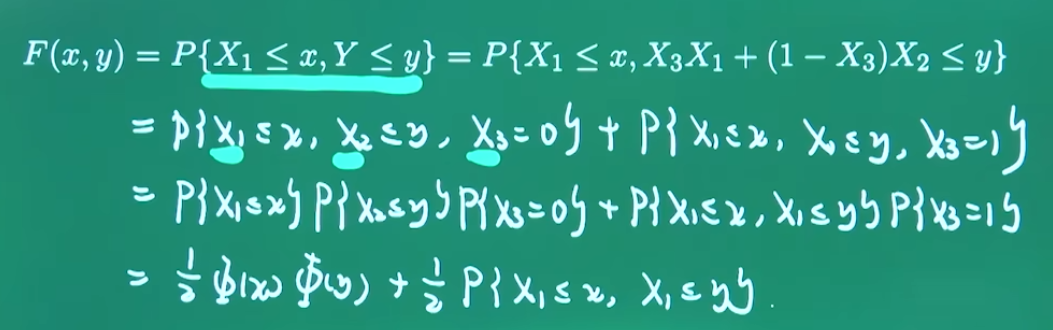 F(x, y) = P{X₁ ≤ x, Y ≤ y} = P{X₁ ≤ x, X₃X₁ + (1 − X₃)X₂ ≤ y}
= P{X₁ ≤ x, X₂ ≤ y, X₃=0} + P{X₁ ≤ x, X₁ ≤ y, X₃=1}
= P{X₁ ≤ x} P{X₂ ≤ y} P{X₃=0} + P{X₁ ≤ x, X₁ ≤ y} P{X₃=1}
= 1/2 Φ(x) Φ(y) + 1/2 P{X₁ ≤ x, X₁ ≤ y}.